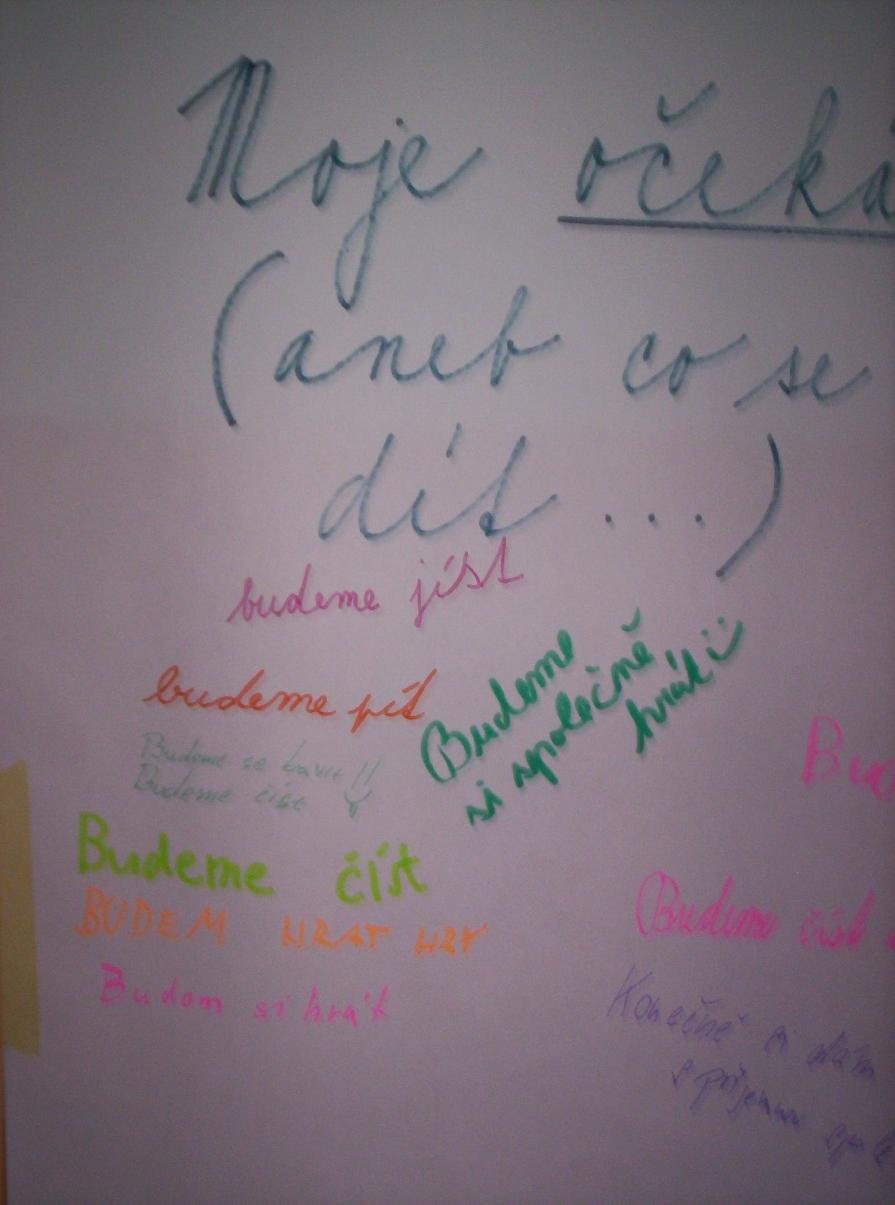 Moje očeka
(aneb co se
dít ...)
budeme jíst
budeme pít
Budeme
si společně
hrát
Budeme se bavit!!
Budeme číst
Budeme číst
BUDEM HRAT HRY
Budom si hrát
Bu
Budeme číst
Konečně si dám
s příjemnou